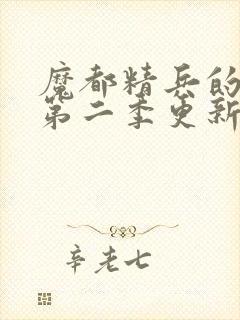 魔都精兵的
第二季更新
辛老七